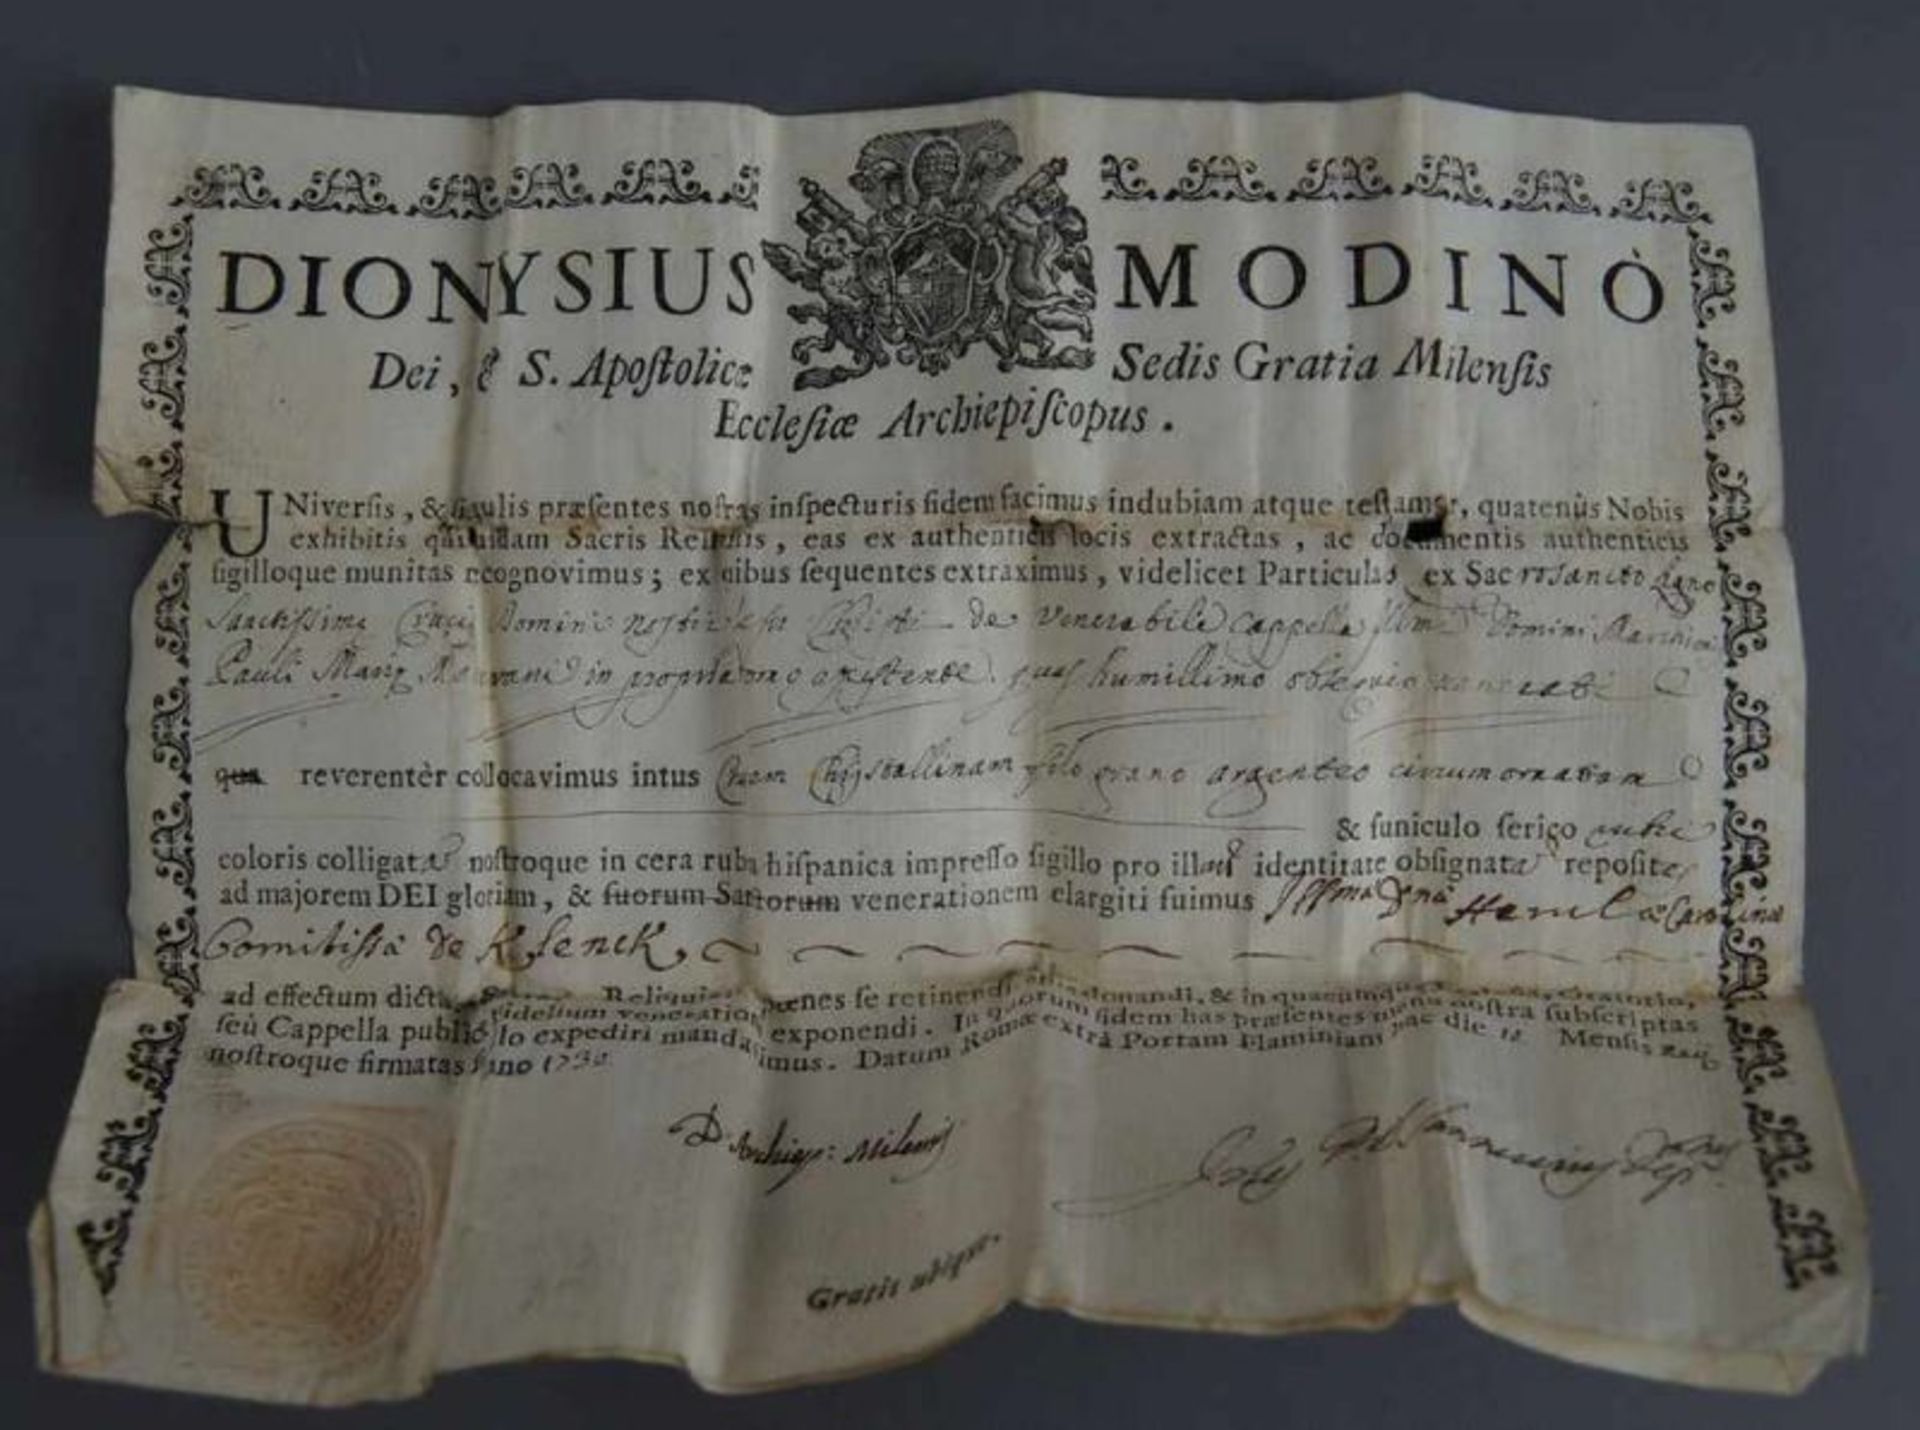 DIONYSIUS MODINÒ
Dei, & S. Apostolicæ Sedis Gratia Milensis
Ecclesiæ Archiepiscopus.
UNiversis, & singulis præsentes nostras inspecturis fidem facimus indubiam atque testamur, quatenùs Nobis
exhibitis quibusdam Sacris Reliquiis, eas ex authenticis locis extractas, ac documentis authenticis
sigilloque munitas recognovimus; ex quibus sequentes extraximus, videlicet Particulas ex Sacrosancto Ligno
Sanctissime Crucis Domini nostri Jesu Christi de Venerabile Cappella Domini Marchionis
Pauli in propria existente quas humillimo
qua reverentèr collocavimus intus Crucem Chrystallinam filo grano argenteo circumornatam
& funiculo serico rubri
coloris colligata nostroque in cera rubra hispanica impresso sigillo pro illarum identitate obsignata reposite
ad majorem DEI gloriam, & suorum Sanctorum venerationem elargiti fuimus Carolinæ
Comitissæ de Klenck
ad effectum Reliquias penes se retinendi, donandi, & in Oratorio,
seù Cappella publicæ fidelium veneratione exponendi. In quorum fidem has præsentes manu nostra subscriptas
nostroque firmatas sigillo expediri mandavimus. Datum Romæ extrà Portam Flaminiam hac die Mensis Maij
Anno
D. Archiep: Milensis
Gratis ubique.